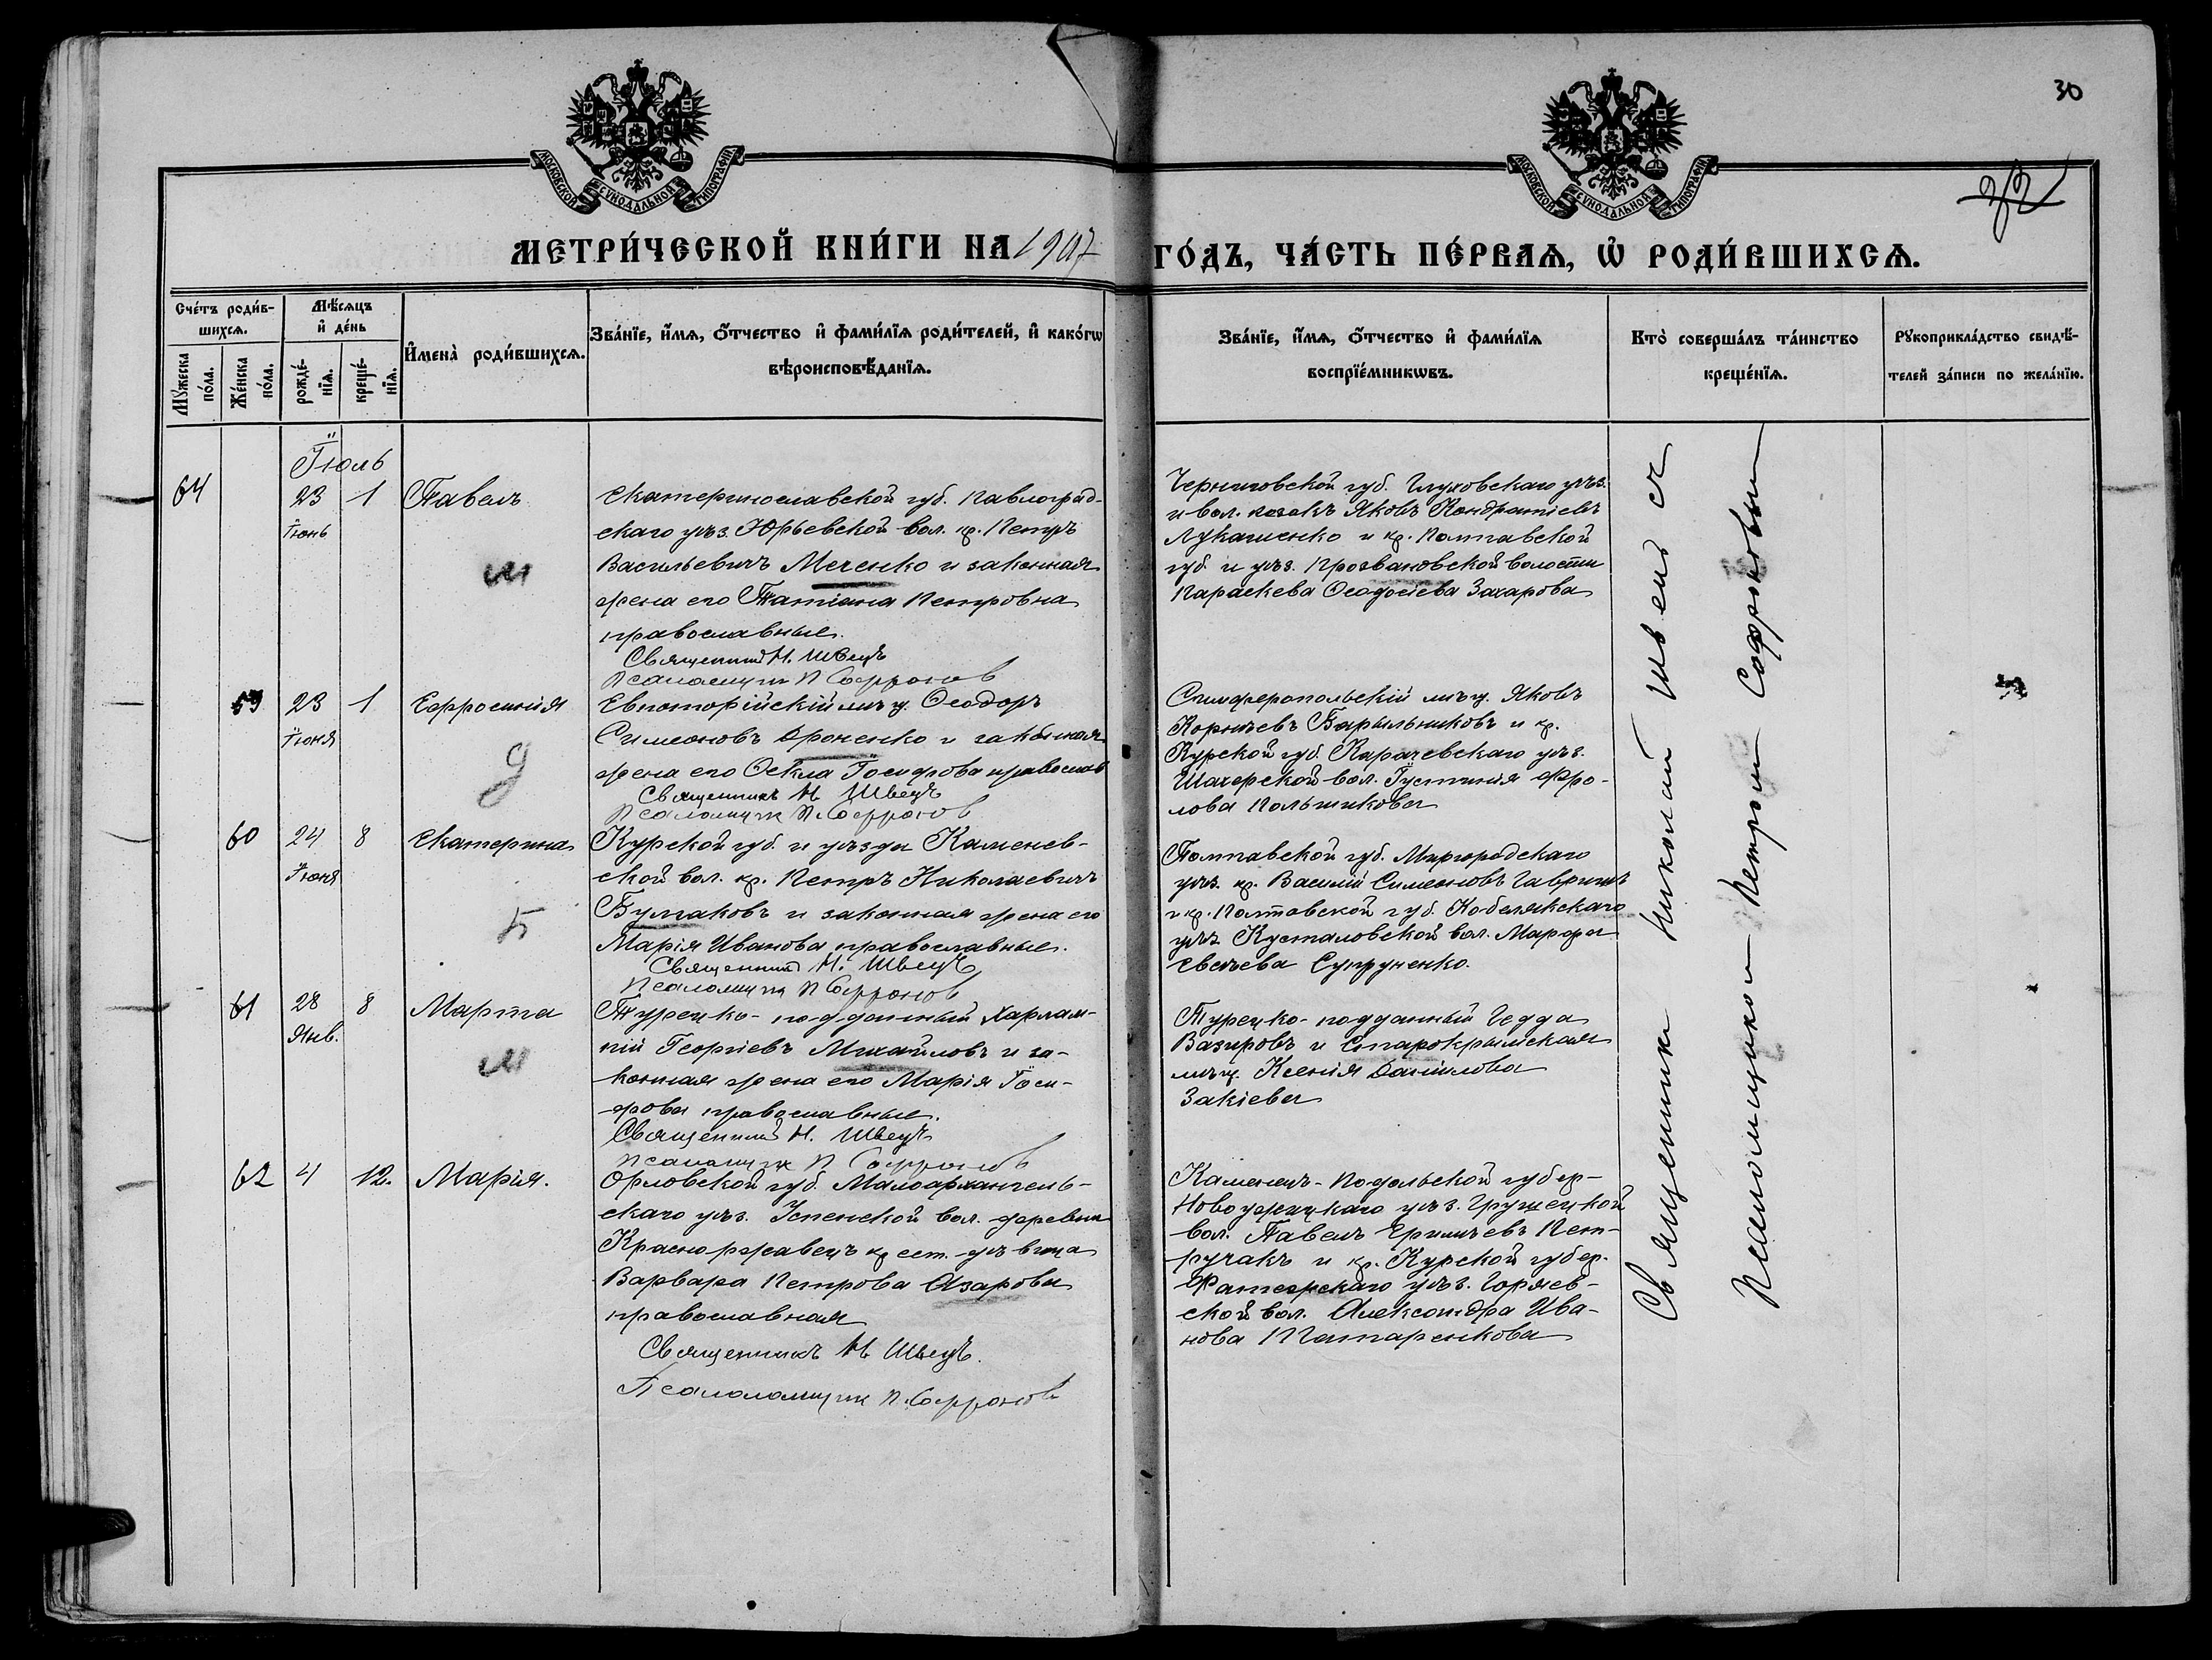 30
МОСКОВСКОЙ СѴНОДАЛЬНОЙ ТИПОГРАФІИ
МОСКОВСКОЙ СѴНОДАЛЬНОЙ ТИПОГРАФІИ
МЕТРИ́ЧЕСКОЙ КНИ́ГИ НА 1907 ГО́ДЪ, ЧА́СТЬ ПЕ́РВАѦ, Ѽ РОДИ́ВШИХСѦ.
Сче́тъ роди́в-
шихсѧ.
Мꙋ́жеска
по́ла.
Же́нска
по́ла.
Мѣ́сѧцъ
и҆ де́нь
рожде́-
нїѧ.
креще́-
нїѧ.
И҆мена̀ роди́вшихсѧ.
Зва́нїе, и҆́мѧ, ѻ҆́тчество и҆ фами́лїѧ роди́телей, и҆ како́гѡ
вѣроисповѣ́данїѧ.
Зва́нїе, и҆́мѧ, ѻ҆́тчество и҆ фами́лїѧ
воспрїе́мникѡвъ.
Кто̀ соверша́лъ та́инство
креще́нїѧ.
Рꙋкоприкла́дство свидѣ́-
телей за́писи по жела́нїю.
Іюль
64
23
Іюнь
1
Павелъ
Екатеринославской губ. Павлоград-
скаго уѣз. Юрьевской вол. кр. Петръ
Васильевичъ Меченко и законная
жена его Татіана Петровна
православные.
Священникъ Н. Швецъ
Псаломщик П Софронов
Черниговской губ. Глуховскаго уѣз.
и вол. козакъ Яковъ Кондратіевъ
Лукашенко и кр. Полтавской
губ. и уѣз. волости
Параскева Ѳеодосіева Захарова
59
23
Іюня
1
Ефросинія
Евпаторійскій мѣщ. Ѳеодоръ
Симеоновъ Дроненко и законная
жена его Ѳекла Іосифова православ
Священникъ Н Швецъ
Псаломщик П. Софронов
Симферопольскій мѣщ. Яковъ
Корнѣевъ Барыльниковъ и кр.
Курской губ. Карачевскаго уѣз.
вол. Іустинія Фро-
лова
60
24
Іюня
8
Екатерина
Курской губ. и уѣзда Каменев-
ской вол. кр. Петръ Николаевичъ
Булгаковъ и законная жена его
Марія Иванова православные.
Священникъ Н. Швецъ
Псаломщик П Софронов
Полтавской губ. Миргородскаго
уѣз. кр. Василій Симеоновъ
и кр. Полтавской губ. Кобелякскаго
уѣз. Кусталовской вол. Марфа
Супруненко.
61
28
Янв.
8
Марта
Турецко-подданный Харлам-
пій Георгіевъ Михайловъ и за-
конная жена его Марія Іоси-
фова православные.
Священникъ Н. Швецъ
Псаломщик П Софронов
Турецко-подданный Чедда
Вазировъ и Старокрымская
мѣщ. Ксенія Даніилова
Закіева
62
4
12.
Марія.
Орловской губ. Малоархангель-
скаго уѣз. Успенской вол. деревни
Красноржавецъ крест. дѣвица
Варвара Петрова Азарова
православная
Священникъ Н Швецъ.
Псаломщик П. Софронов
Каменецъ-Подольской губер-
Новоушицкаго уѣз.
вол. Павелъ Пет-
ручакъ и кр. Курской губер.
Фатежскаго уѣз.
ской вол. Александра Ива-
нова
Священникъ Николай Швецъ съ
Псаломщикомъ Петромъ Софроновымъ